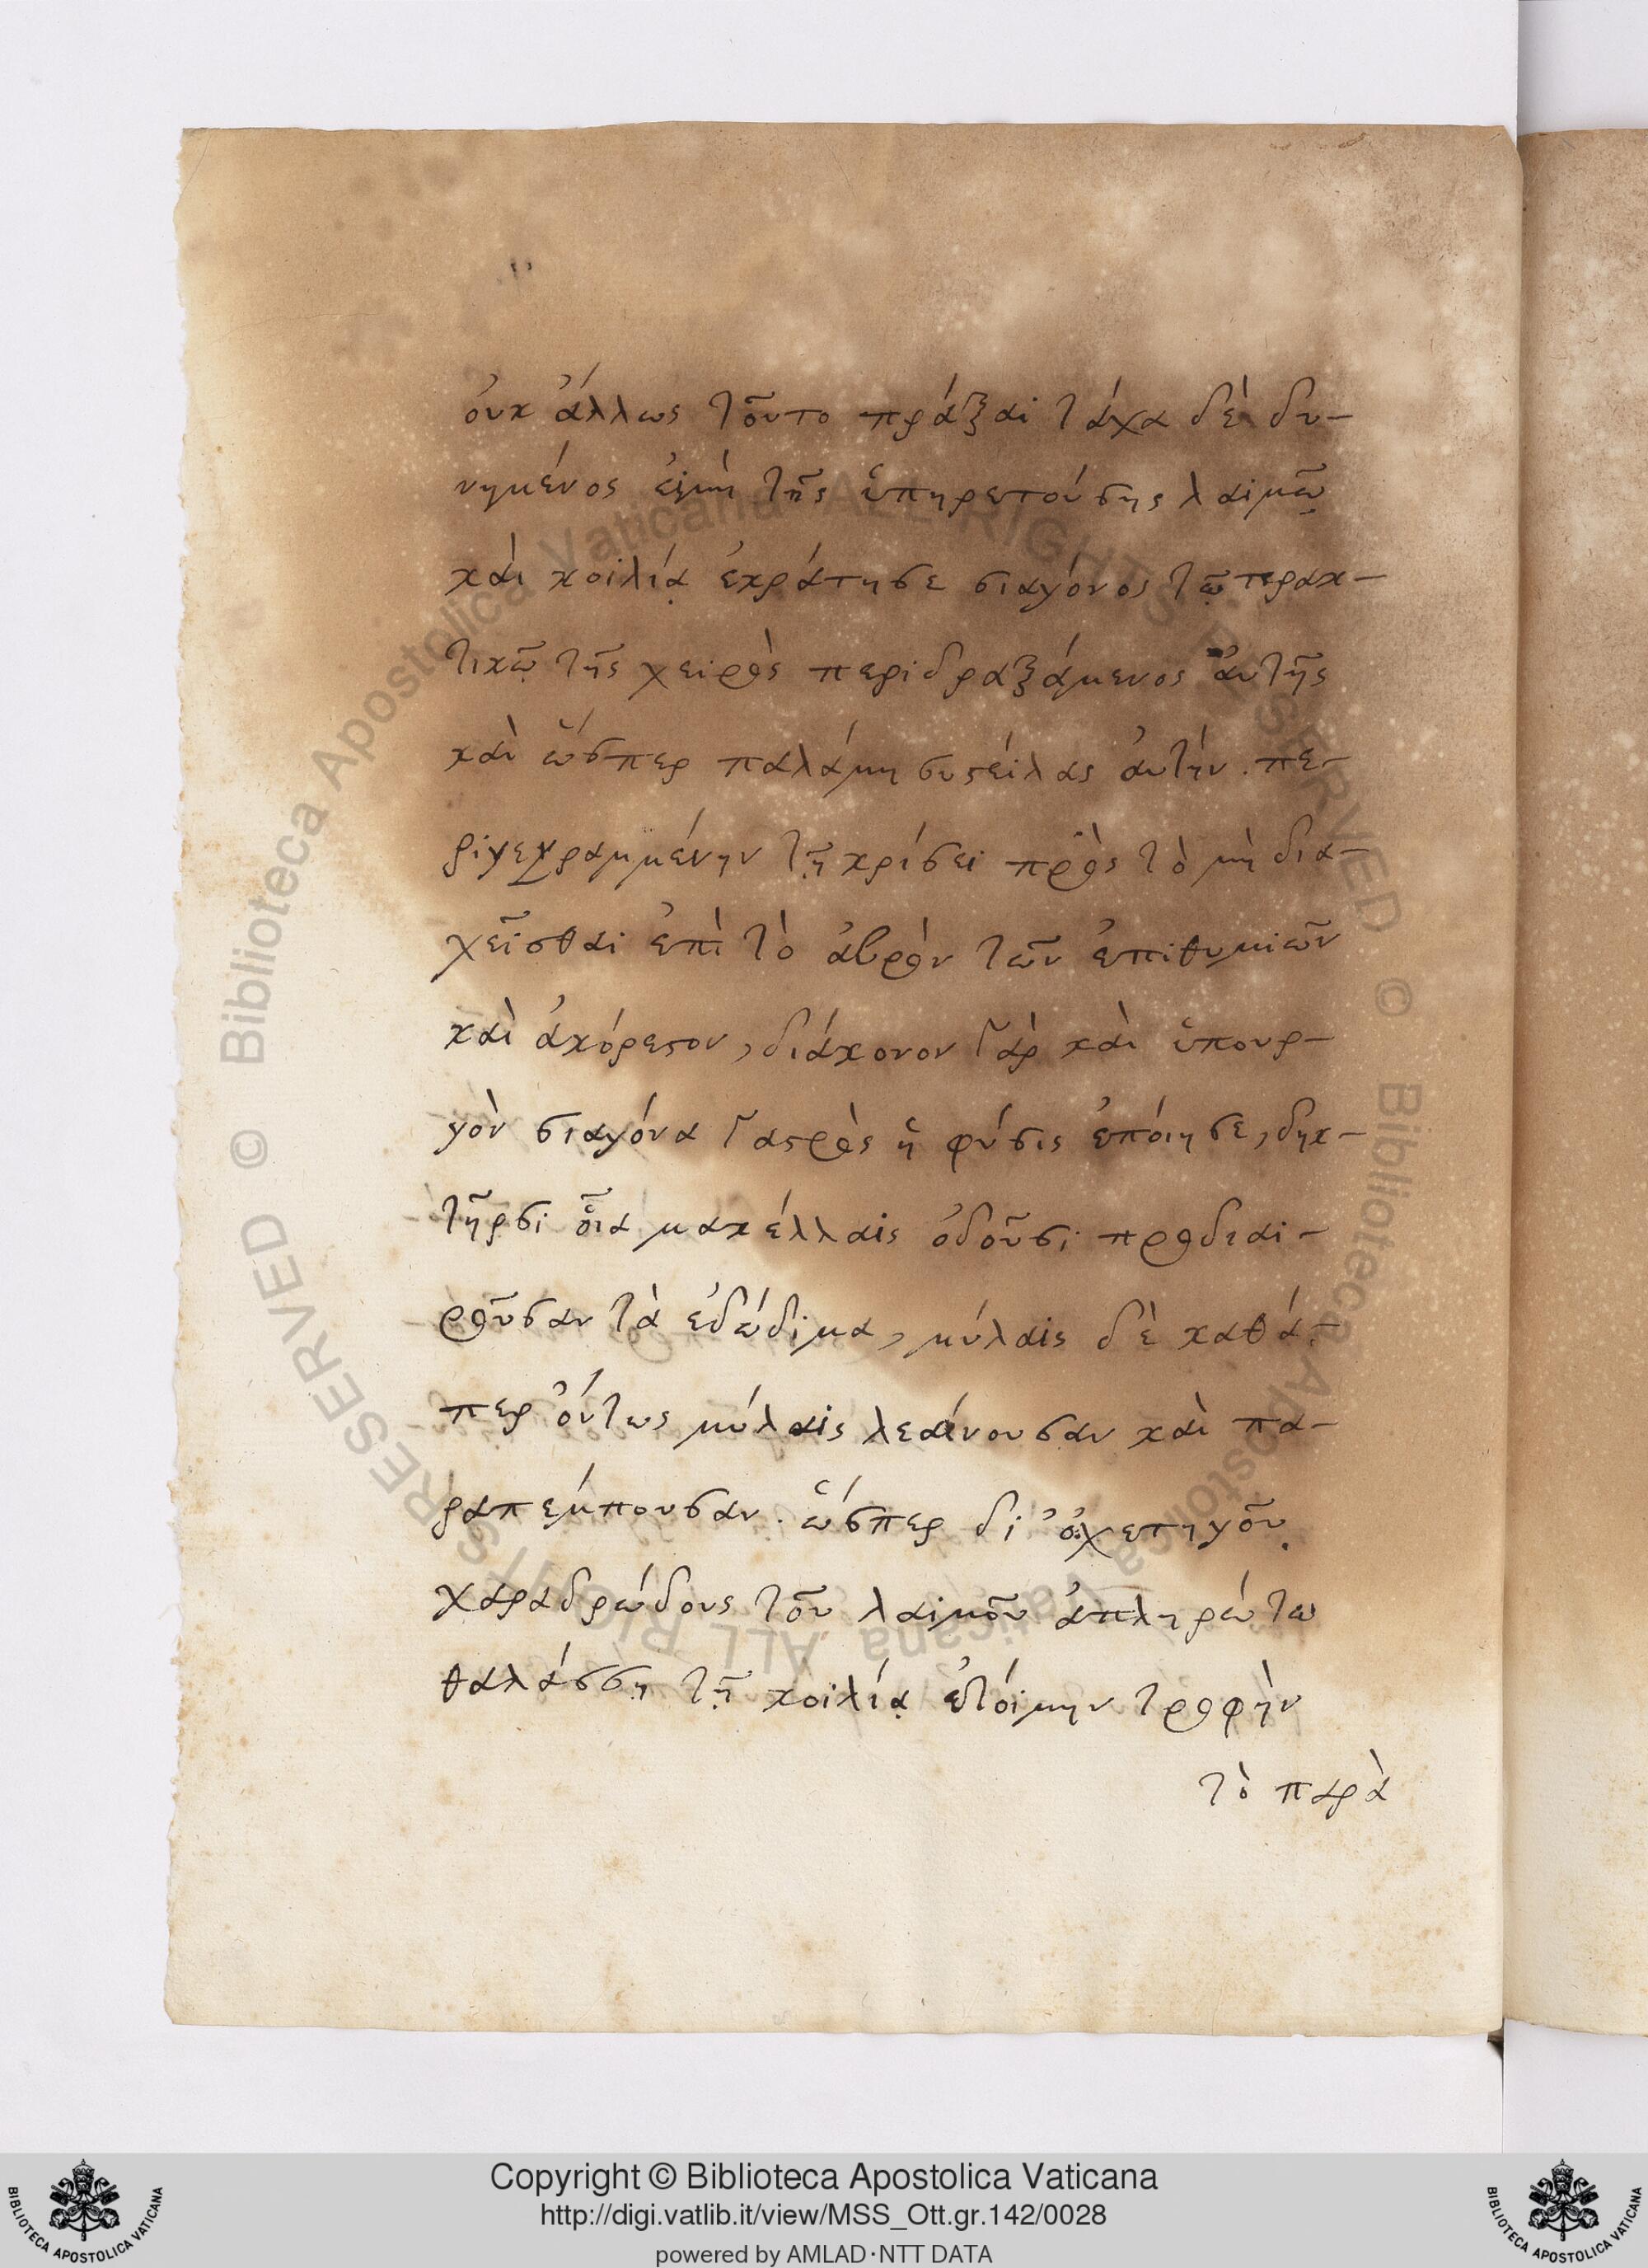 ὀυκ ἄλλως τοῦτο πράξαι τάχα δὲ δυ-
νημένος εἰμὴ τῆς ὑπηρετούσης λαιμῷ
κὰι κοιλίᾳ ἐκράτησε σιαγόνος τῷ πρακ-
τικῷ τῆς χειρὸς περιδραξάμενος ἀυτῆς
κὰι ὥσπερ παλάμη συστείλας ἀυτήν. πε-
ριγεγραμμένην τῇ κρίσει πρὸς τὸ μὴ δια-
χεῖσθαι ἐπὶ τὸ ἁβρὸν τῶν ἐπιθυμιῶν
κὰι ἀκόρεστον, διάκονον γὰρ κὰι ὑπουρ-
γὸν σιαγόνα γαστρὸς ἡ φύσις ἐπόιησε, δηκ-
τῆρσι οἷα μακέλλαις ὀδοῦσι προδιαι-
ροῦσαν τὰ ἐδώδιμα, μύλαις δὲ καθά-
περ ὄντως μύλαις λεαίνουσαν κὰι πα-
ραπέμπουσαν. ὥσπερ δι' ὀχετηγοῦ
χαραδρώδους τοῦ λαιμοῦ ἀπληρώτω
θαλάσσῃ τῇ κοιλίᾳ ἑτόιμην τροφὴν
τὸ παρὰ
© Biblioteca Apostolica Vaticana ALL RIGHTS RESERVED
© Biblioteca Apostolica Vaticana ALL RIGHTS RESERVED
Copyright © Biblioteca Apostolica Vaticana
http://digi.vatlib.it/view/MSS_Ott.gr.142/0028
powered by AMLAD·NTT DATA
BIBLIOTECA APOSTOLICA VATICANA
BIBLIOTECA APOSTOLICA VATICANA